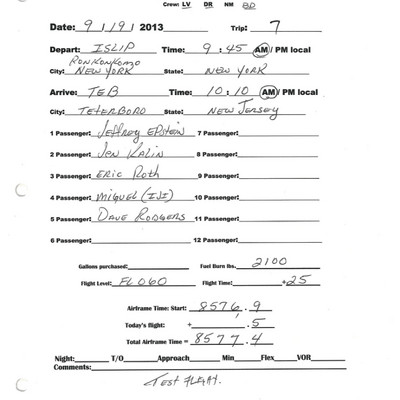 Crew: LV DR NM BD
Date: 9/9/2013 Trip: 7
Depart: ISLIP Time: 9:45 AM / PM local
RONKONKOMO
City: NEW YORK State: NEW YORK
Arrive: TEB Time: 10:10 AM / PM local
City: TETERBORO State: NEW JERSEY
1 Passenger: Jeffrey EPSTEIN 7 Passenger:
2 Passenger: Jen KALIN 8 Passenger:
3 Passenger: ERIC Roth 9 Passenger:
4 Passenger: MIGUEL (IJI) 10 Passenger:
5 Passenger: DAVE RODGERS 11 Passenger:
6 Passenger: 12 Passenger:
Gallons purchased: Fuel Burn lbs. 2100
Flight Level: FL060 Flight Time: +25
Airframe Time: Start: 8576.9
Today's flight: + .5
Total Airframe Time = 8577.4
Night: T/O Approach Min Flex VOR
Comments:
TEST FLIGHT.